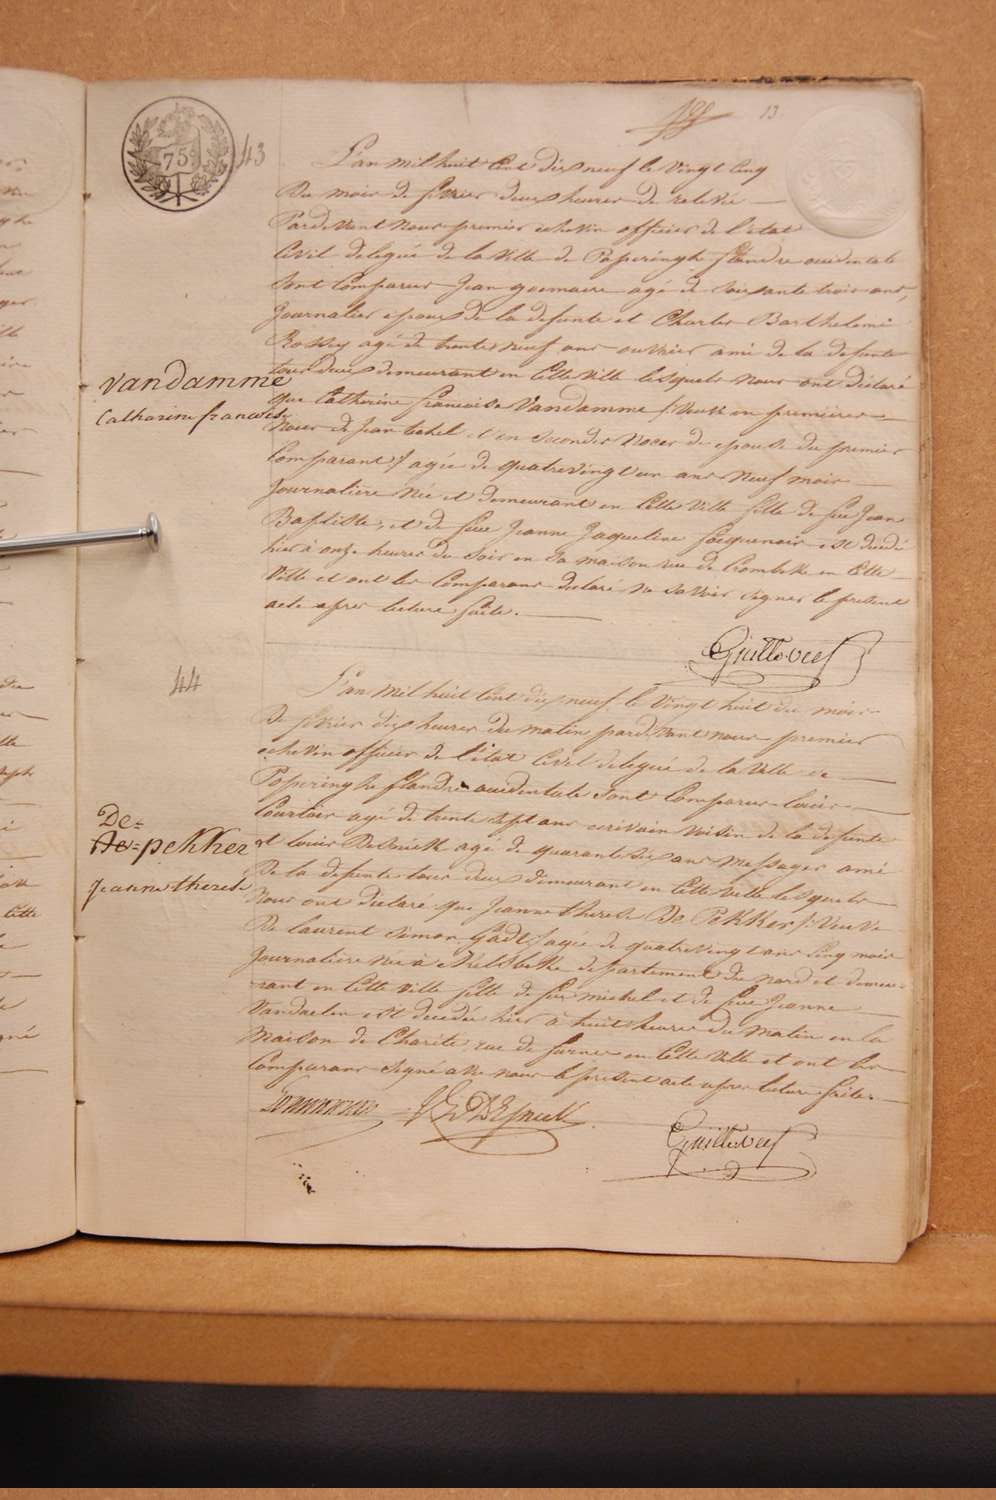 13
75
43
L'an mil huit Cent dix neuf le vingt Cinq
du mois de fevrier deux heures de relevée
Pardevant nous premier echevin officier de l'état
Civil delegué de la ville de Poperinghe flandre occidentale
Sont Comparus Jean goemaere agé de soixante trois ans,
Journalier epoux de la defunte et Charles Barthelemi
agé de trente neuf ans ouvrier ami de la defunte
tous deux demeurant en Cette ville lesquels nous ont déclaré
Vandamme
Catharine francoise
que Catherine francoise Vandamme /: veuve en premieres
Noces de Jean et en secondes Noces de epouse du premier
Comparant :/ agée de quatrevingt un ans neuf mois
Journaliere née et demeurant en Cette ville fille de feu Jean
Baptiste, et de feue Jeanne Jaqueline est decedée
hier à onze heures du soir en sa maison rue de Crombeke en Cette
Ville et ont les Comparans declaré ne savoir signer le présent
acte apres lecture faite.
Guillo
44
L'an Mil huit Cent dix neuf le vingt huit du mois
de fevrier dix heures du matin pardevant nous premier
echevin officier de l'état Civil delegué de la ville de
Poperinghe flandre occidentale sont Comparus Louis
Courtois agé de trente sept ans ecrivain voisin de la defunte
De=
De=pekker
et Louis Desnick agé de quarante six ans Messager ami
De la defunte tous deux demeurant en Cette ville lesquels
Jeanne therese
Nous ont declaré que Jeanne therese De Pekker /: veuve
De laurent Simon :/ agée de quatrevingt ans Cinq mois
Journaliere née à departement du nord et demeu-
rant en Cette ville fille de feu michel et de feue Jeanne
Vandaelen est decedée hier à huit heures du Matin en la
Maison de Charité, rue de furnes en Cette ville et ont les
Comparans signé avec nous le present acte apres lecture faite.
Guillo